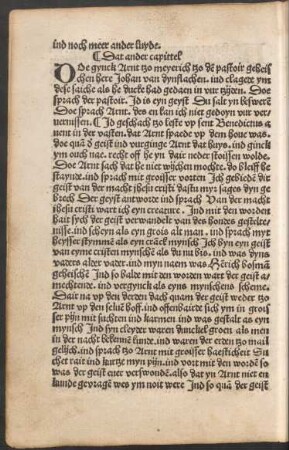 ind noch meer ander luyde.
Dat ander capittel
DOe gynck Arnt tzo meyerich tzo dē pastoir geheis
chen here Johan van dynslachen. ind clagete ym
dese saiche als he ducke had gedaen in vur tzijden. Doe
sprach der pastoir. Id is eyn geyst Du salt yn beswerē
Doe sprach Arnt. des en kan ich niet gedoyn vur ver
veernissen. Id geschach tzo leste vp sent Benedictus a
uent in der vasten. dat Arnt spaede vp dem houe was.
doe quā d geist ind vurginge Arnt dat huys. ind ginck
ym ouch nae. recht off he yn dair neder stoissen wolde.
Doe Arnt sach dat he niet wijchen mochte. do bleiff he
staynde. ind sprach mit groisser vorten Ich gebiede dir
geist van der macht ihesu cristi dastu myr sages dyn ge
brech Der geyst antworde ind sprach Van der macht
ihesu cristi wart ich eyn creature. Ind mit den worden
hait sych der geist verwandelt van des hondes gestelte
nisse. ind scheyn als eyn grois alt man. ind sprach myt
heysser stymme als eyn cranck mynsch Ich byn eyn geist
van eyme cristen mynsche als du nu bis. ind was dyns
vaders alder vader. ind myn naem was Henrich bosman
geheischē Ind so balde mit den worden wart der geist al
mechtende. ind vergynck als eyns mynschens scheme.
Dair na vp den derden dach quam der geist weder tzo
Arnt vp den seluē hoff. ind offenbairde sich ym in grois
ser pijn mit suchten ind karmen ind was gestalt as eyn
mynsch Ind syn cleyder waren dunckel groen als men
in der nacht bekennē kunde. ind waren der erden tzo mail
gelijch. ind sprach tzo Arnt mit groisser haestichheit Su
chet rait ind kurtze myn pijn. ind vort mit den wordē so
was der geist euer verswondē. also dat yn Arnt niet en
kunde gevragē wes ym noit were Ind so quā der geist